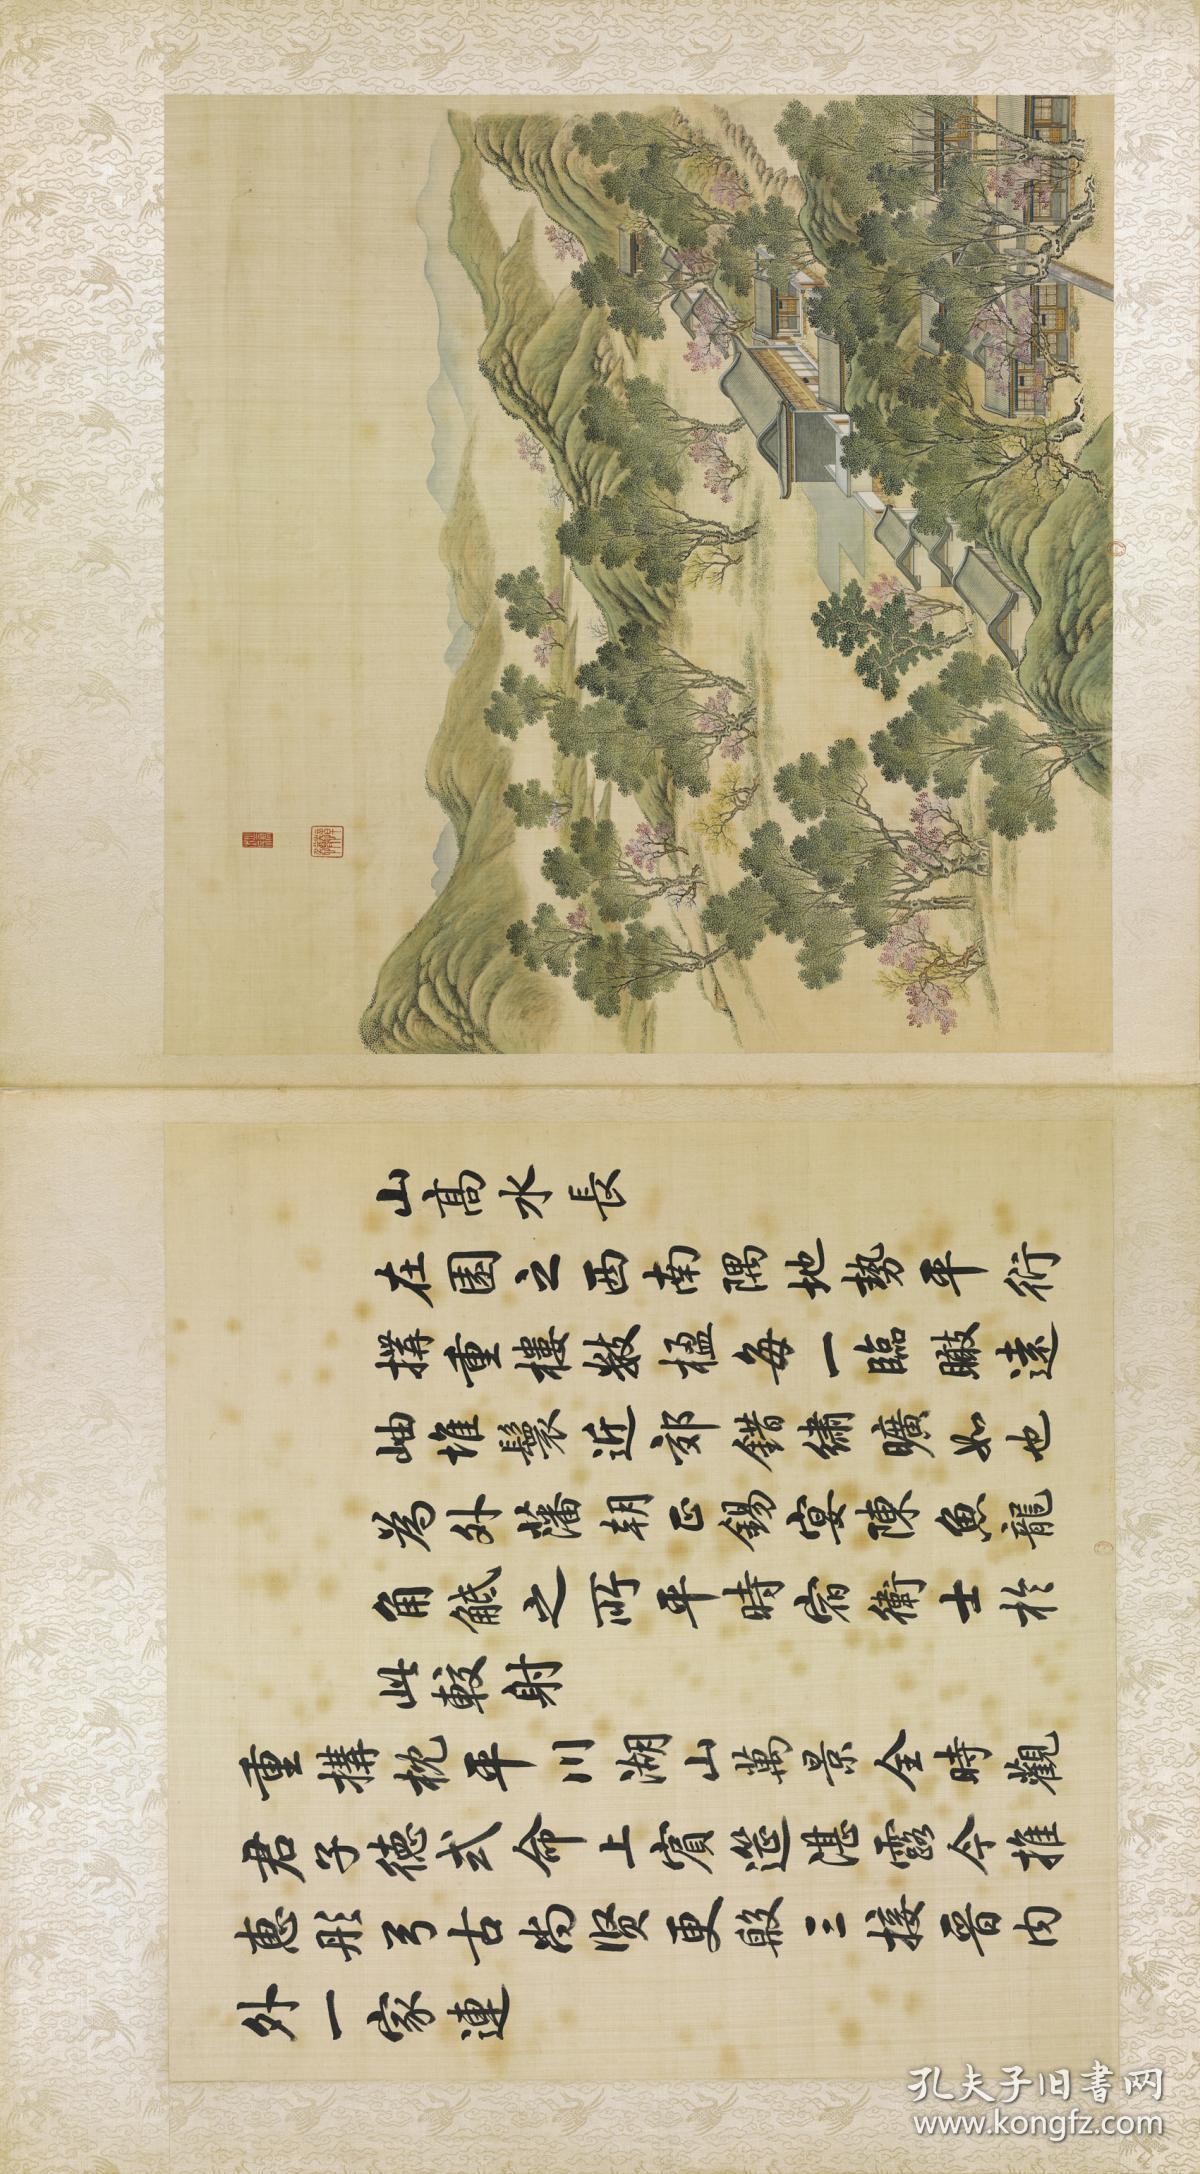 山高水長
在園之西南隅地勢平衍
搆重樓數楹每一臨瞰遠
岫堆鬟近郊錯繡曠如也
為外藩朝正錫宴陳魚龍
角觝之所平時宿衛士於
此較射
重搆枕平川湖山萬景全時觀
君子德式命上賓筵湛露今推
惠彤弓古尚賢更殷三接晉內
外一家連
孔夫子旧書网
www.kongfz.com